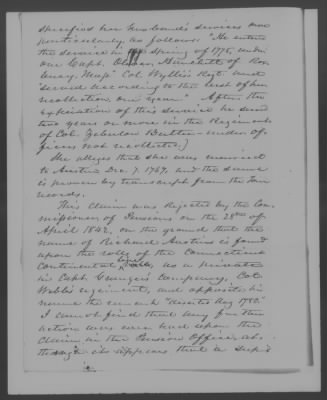 specifies her husband's services more
particularly as follows: "He entered
the service in the spring of 1775, under
one Capt. Oliver Hanchett of Rox
bury, Maſs Col. Wyllis's Regt. and
served according to the best of her
recollection one year." After the
expiration of this service he served
two years or more in the Regiment
of Col. Zebulon Butler—under of-
ficers not recollected.)
She alleges that she was married
to Austin Dec. 7. 1769, and the same
is proven by transcript from the Town
records.
This claim was rejected by the Com
missioner of Pensions on the 28th of
April 1842, on the ground that the
name of Richard Austin is found
upon the rolls of the Connecticut
Continental as a private
in Capt. Company, Col.
Webb's regiment, and opposite his
name the remark "deserted Aug 1782."
I cannot find that any further
action was ever had upon the
claim in the Pension Office, al-
though it appears that a supl